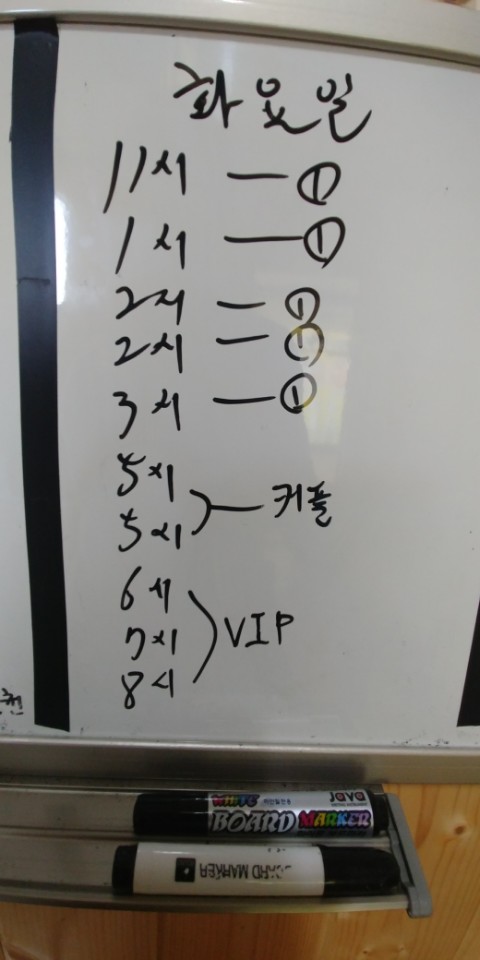 화요일
11시 — ①
1시 — ①
2시 — ①
2시 — ①
3시 — ①
5시
5시
커플
6시
7시
8시
VIP
천
WHITE
JAVA
BOARD MARKER
BOARD MARKER